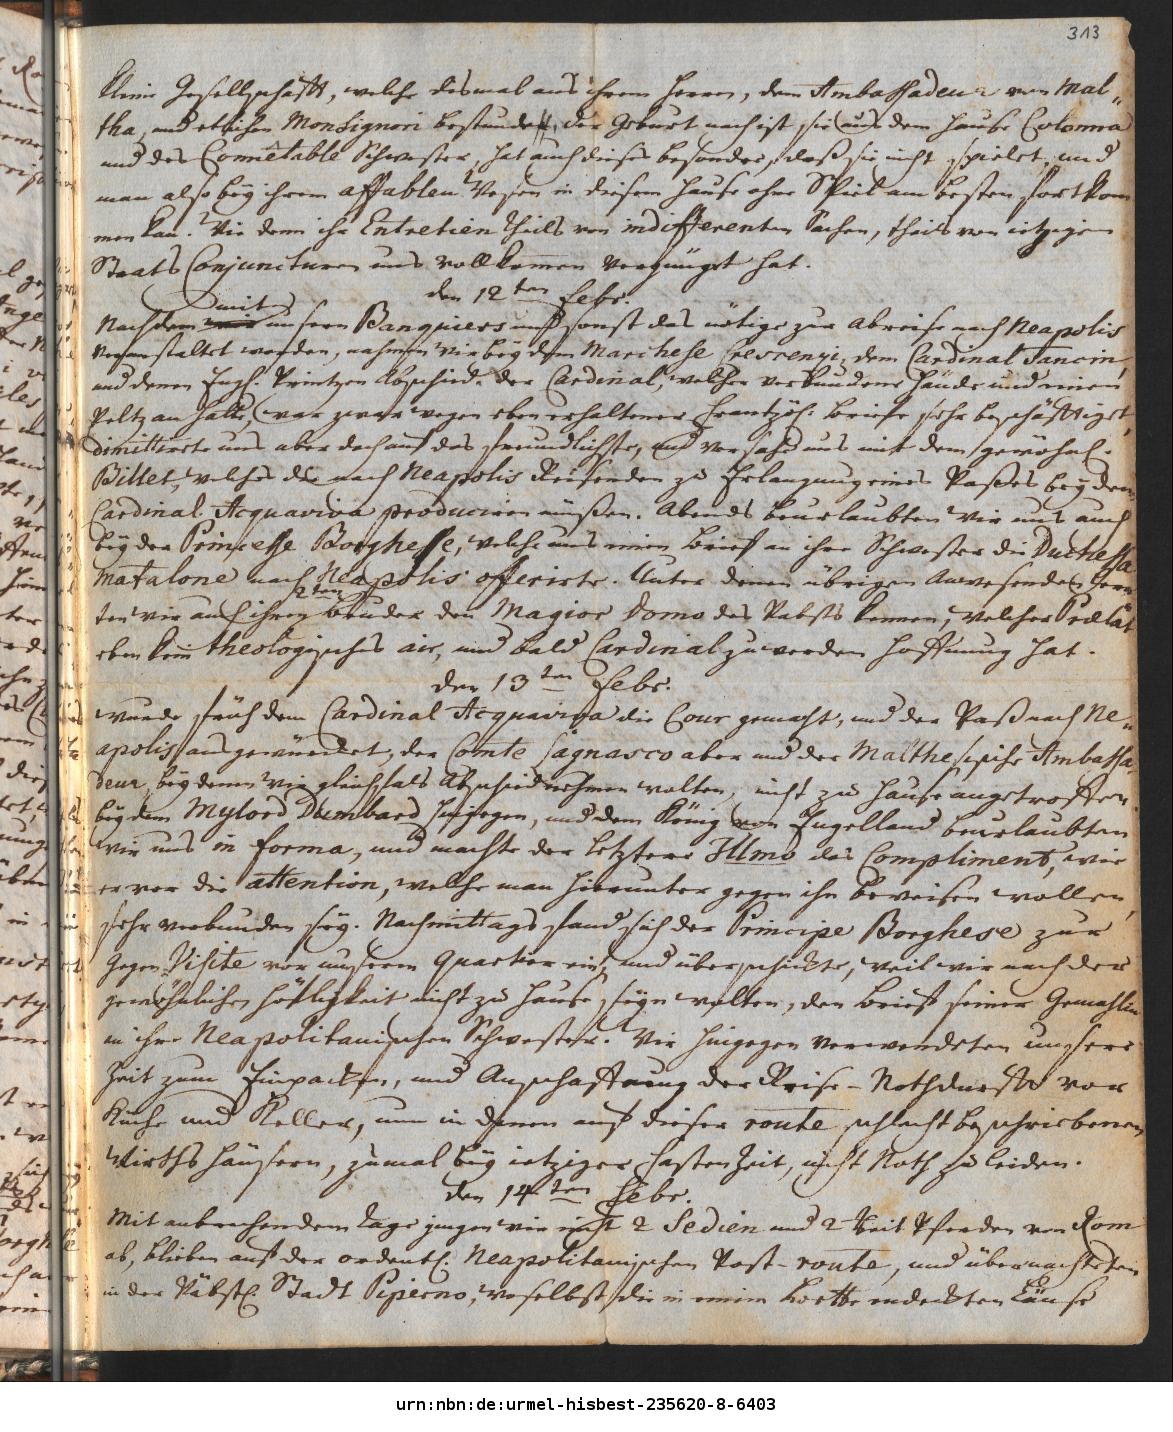 313
kleine Gesellschafft, welche dismal aus ihrem Herrn, dem Ambassadeur von Mal-
tha, und etlichen Monsignori bestunde, der Geburt nach ist sie aus dem Hause Colonna
und des Connétable Schwester, hat auch dieses besonder, daß sie nicht spielet, und
man also bey ihrem affablen Wesen in diesem Hause ohne Spiel am besten fortkom
men kan. Wie denn ihr Entretien theils von indifferenten Sachen, theils von ietzigen
Staats Conjuncturen uns vollkommen vergnüget hat.
den 12ten Febr.
Nachdem mit unsern Banquiers und sonst das nötige zur Abreise nach Neapolis
veranstaltet worden, nahmen wir bey dem Marchese Crescenzi, dem Cardinal Tancin,
und denen Engl. Printzen Abschied. Der Cardinal, welcher verbundene Hände und einen
Peltz an hatte, war zwar wegen eben erhaltener Frantzös. Briefe sehr beschäfftiget,
dimittirte uns aber doch auf das freundlichste, und versahe uns mit dem gewöhnl.
Billet, welches die nach Neapolis Reisenden zu Erlangung eines Paßes bey dem
Cardinal Acquaviva produciren müßen. Abends beurlaubten wir uns auch
bey der Princesse Borghese, welche uns einen Brief an ihre Schwester die Duchessa
Matalone nach Neapolis offerirte. Unter denen übrigen Anwesenden lern
ten wir auch ihren 2ten Bruder den Magior Domo des Pabsts kennen, welcher Prælat
eben kein theologisches air, und bald Cardinal zu werden Hoffnung hat.
den 13ten Febr.
wurde früh dem Cardinal Acquaviva die Cour gemacht, und der Paß nach Ne-
apolis ausgewürcket, der Comte Lagnasco aber und der Malthesische Ambassa-
deur, bey denen wir gleichfals Abschied nehmen wolten, nicht zu Hause angetroffen.
bey dem Mylord Dumbard hingegen, und dem König von Engelland beurlaubten
wir uns in forma, und machte der letztere Illmo das Compliment, wie
er vor die attention, welche man hierunter gegen ihn beweisen wollen,
sehr verbunden sey. Nachmittags fand sich der Principe Borghese zur
Gegen Visite vor unserm Quartier ein, und überschickte, weil wir nach der
gewöhnlichen Höfligkeit nicht zu Hause seyn wolten, den Brief seiner Gemahlin
an ihre Neapolitanischen Schwester. Wir hingegen verwendeten unsere
Zeit zum Einpacken, und Anschaffung der Reise-Nothdurfft vor
Küche und Keller, um in denen auf dieser route schlecht beschriebenen
Wirths Häusern, zumal bey ietziger Fasten Zeit, nicht Noth zu leiden.
den 14ten Febr.
Mit anbrechendem Tage gingen wir mit 2 Sedien und 2 Reit Pferden von Rom
ab, blieben auf der ordentl. Neapolitanischen Post-route, und übernachteten
in der Päbstl. Stadt Piperno, woselbst die in einem Bette endeckten Läuse
urn:nbn:de:urmel-hisbest-235620-8-6403